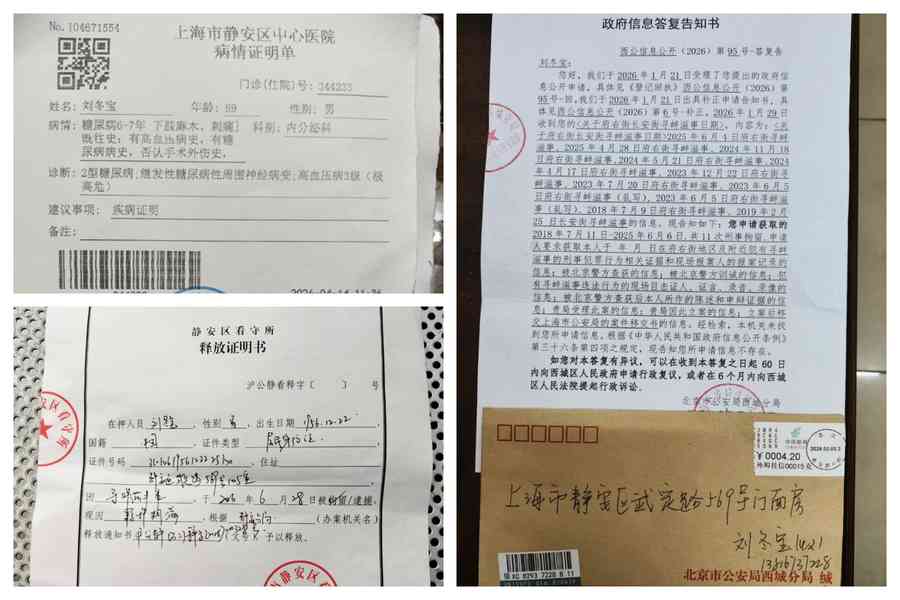 No.104671554
上海市静安区中心医院
病情证明单
门诊(住院)号: 344233
姓名: 刘冬宝 年龄: 59 性别: 男
病情: 糖尿病6-7年 下肢麻木, 刺痛 科别: 内分泌科
既往史: 有高血压病史, 有糖
尿病病史, 否认手术外伤史,
诊断: 2型糖尿病;继发性糖尿病性周围神经病变;高血压病3级(极
高危)
建议事项: 疾病证明
备注:
静安区看守所
释放证明书
沪公静看释字〔 〕 号
在押人员 性别 男, 出生日期
国籍 证件类型 居民身份证,
证件号码 , 住址
因 于 年 6 月 28 日被拘留/逮捕,
现因 根据 (办案机关名)
释放通知书 予以释放。
政府信息答复告知书
西公信息公开(2026)第95号-答复告
刘冬宝:
您好,我们于2026年1月21日受理了您提出的政府信
息公开申请,具体见《登记回执》西公信息公开(2026)第
95号-回,我们于2026年1月21日出具补正申请告知书,具
体见西公信息公开(2026)第6号-补正。2026年1月29日
收到您的《关于府右街长安街寻衅滋事日期》,内容为:<关
于府右街长安街寻衅滋事日期>2025年6月4日府右街寻衅
滋事、2025年4月28日府右街寻衅滋事、2024年11月18
日府右街寻衅滋事、2024年5月21日府右街寻衅滋事、2024
年4月17日府右街寻衅滋事、2023年12月22日府右街寻
衅滋事、2023年7月20日府右街寻衅滋事、2023年6月5
日府右街寻衅滋事(乱写)、2023年6月5日府右街寻衅滋
事(乱写)、2018年7月9日府右街寻衅滋事、2019年2月
25日长安街寻衅滋事的信息。现告知如下:您申请获取的
2018年7月11日-2025年6月6日,共11次刑事拘留,申请
人要求获取本人于 年 月 日在府右街地区及附近犯有寻衅
滋事的刑事犯罪行为相关证据和现场报案人的报案记录的
信息;被北京警方查获的信息;被北京警方训诫的信息;犯
有寻衅滋事违法行为的现场目击证人、证言、录音、录像的
信息;被北京警方查获后本人所作的陈述和申辩证据的信
息;贵局受理此案的信息;贵局因此立案的信息;立案后移
交上海市公安局的案件移交书的信息。经检索,本机关未找
到您所申请信息。根据《中华人民共和国政府信息公开条例》
第三十六条第四项之规定,现告知您所申请信息不存在。
如您对本答复有异议,可以在收到本答复之日起60日
内向西城区人民政府申请行政复议,或者在6个月内向西城
区人民法院提起行政诉讼。
北京市公安局西城分局
¥0004.20
上海市静安区武定路569号门面房
刘冬宝
北京市公安局西城分局 缄